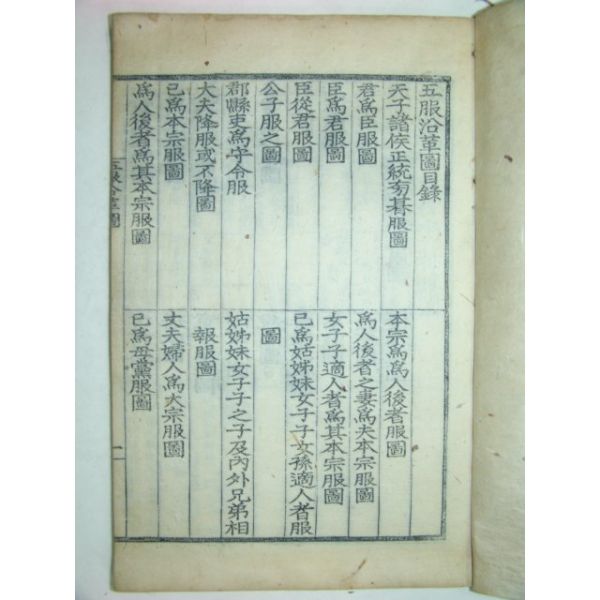 五服沿革圖目錄
天子諸侯正統旁朞服圖
本宗爲爲人後者服圖
君爲臣服圖
爲人後者之妻爲夫本宗服圖
臣爲君服圖
女子子適人者爲其本宗服圖
臣從君服圖
已爲姑姊妹女子子女孫適人者服
公子服之圖
圖
郡縣吏爲守令服
姑姊妹女子子之子及內外兄弟相
大夫降服或不降圖
報服圖
已爲本宗服圖
丈夫婦人爲大宗服圖
爲人後者爲其本宗服圖
已爲母黨服圖
五服沿革圖
一